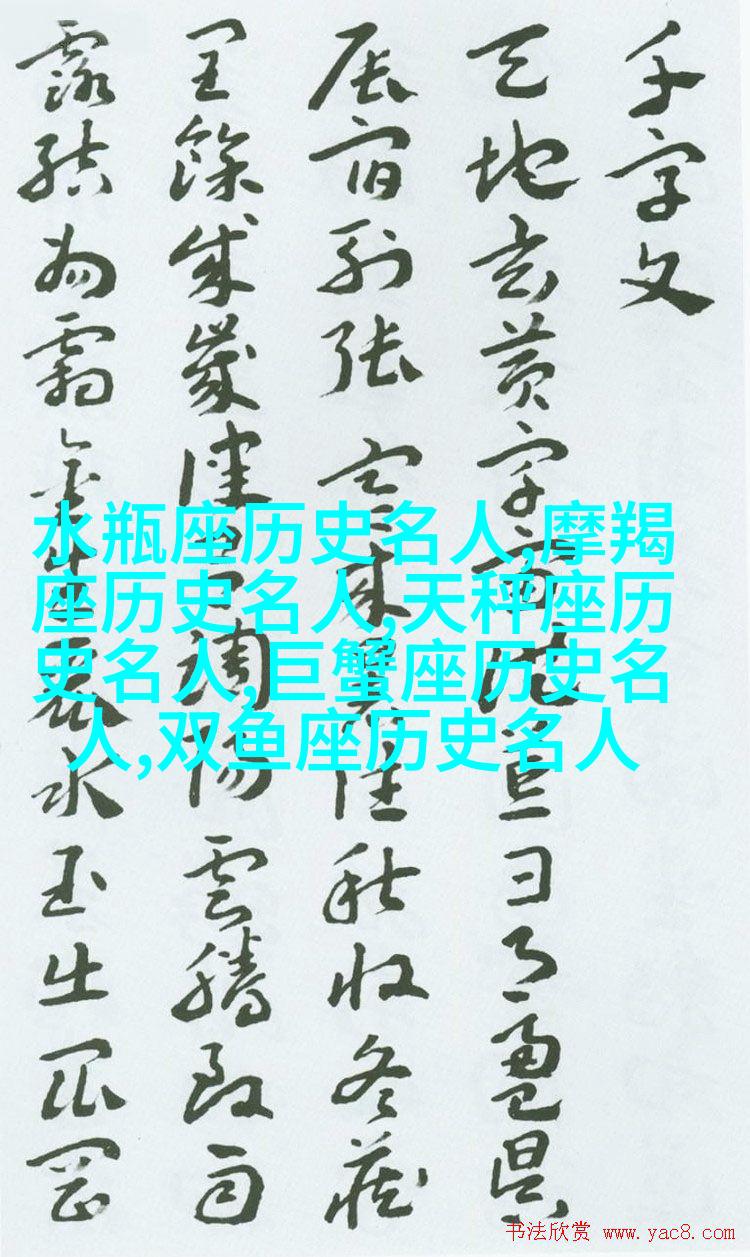 千字文
天地玄黄宇宙洪荒日月盈昃
辰宿列張寒来暑往秋收冬藏
閏餘成歲律吕調陽雲騰致雨
露結為霜金生麗水玉出崑岡
水瓶座历史名人,摩羯
座历史名人,天秤座历
史名人,巨蟹座历史名
人,双鱼座历史名人
书法欣赏 www.yac8.com